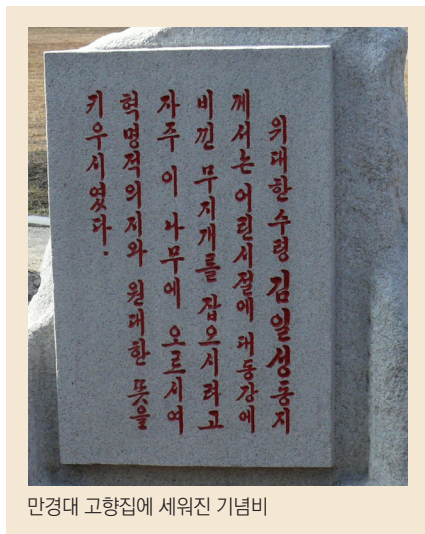 위대한 수령 김일성동지
께서는 어린시절에 대동강에
비낀 무지개를 잡으시려고
자주 이 나무에 오르시여
혁명적의지와 원대한 뜻을
키우시였다.
만경대 고향집에 세워진 기념비